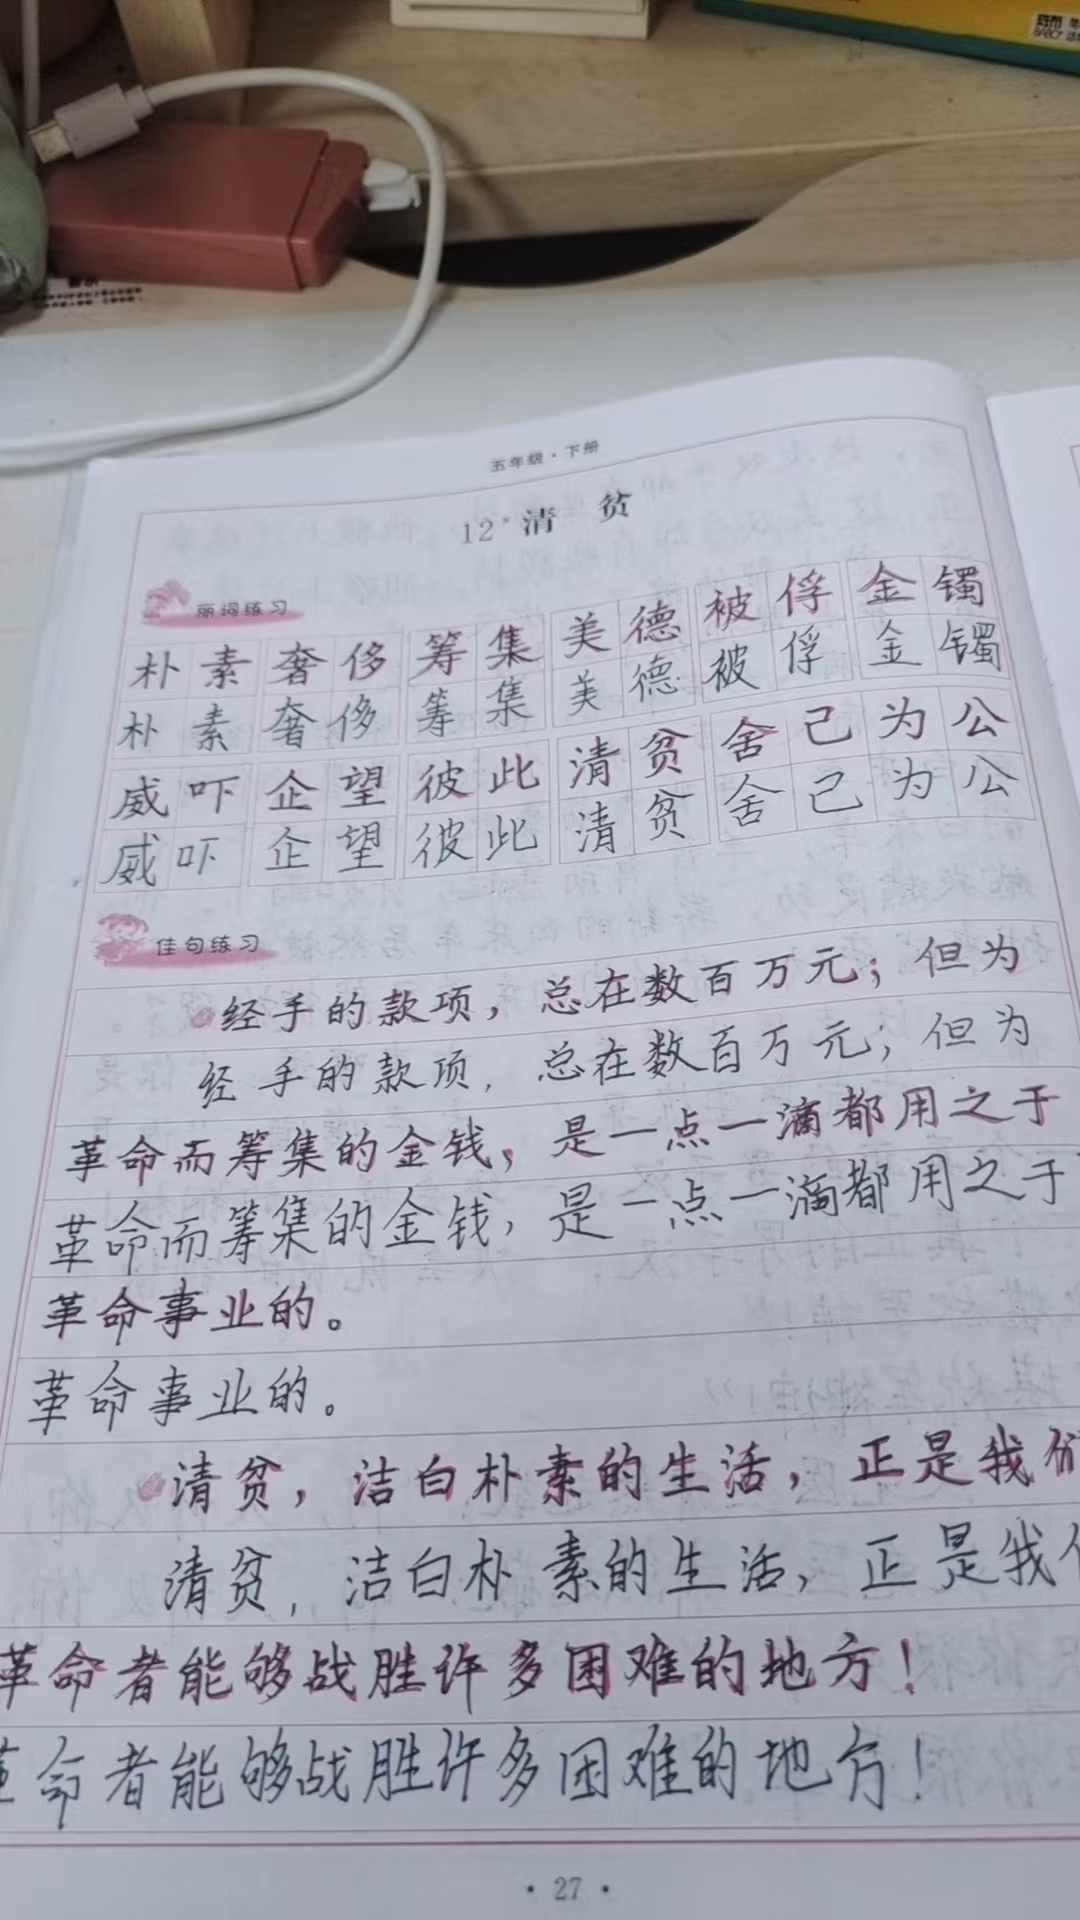 五年级·下册
12*清 贫
丽词练习
朴素 奢侈 筹集 美德 被俘 金镯
朴素 奢侈 筹集 美德 被俘 金镯
威吓 企望 彼此 清贫 舍己为公
威吓 企望 彼此 清贫 舍己为公
佳句练习
经手的款项，总在数百万元；但为
经手的款项，总在数百万元；但为
革命而筹集的金钱，是一点一滴都用之于
革命而筹集的金钱，是一点一滴都用之于
革命事业的。
革命事业的。
清贫，洁白朴素的生活，正是我们
清贫，洁白朴素的生活，正是我们
革命者能够战胜许多困难的地方！
革命者能够战胜许多困难的地方！
·27·